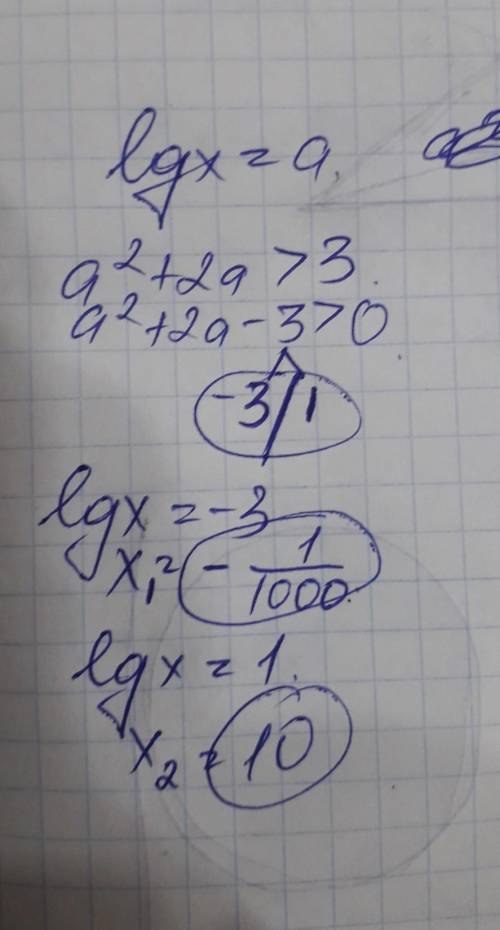 lgx = a.
a² + 2a > 3.
a² + 2a - 3 > 0
-3 / 1
lgx = -3
x₁ = - 1/1000.
lgx = 1.
x₂ = 10